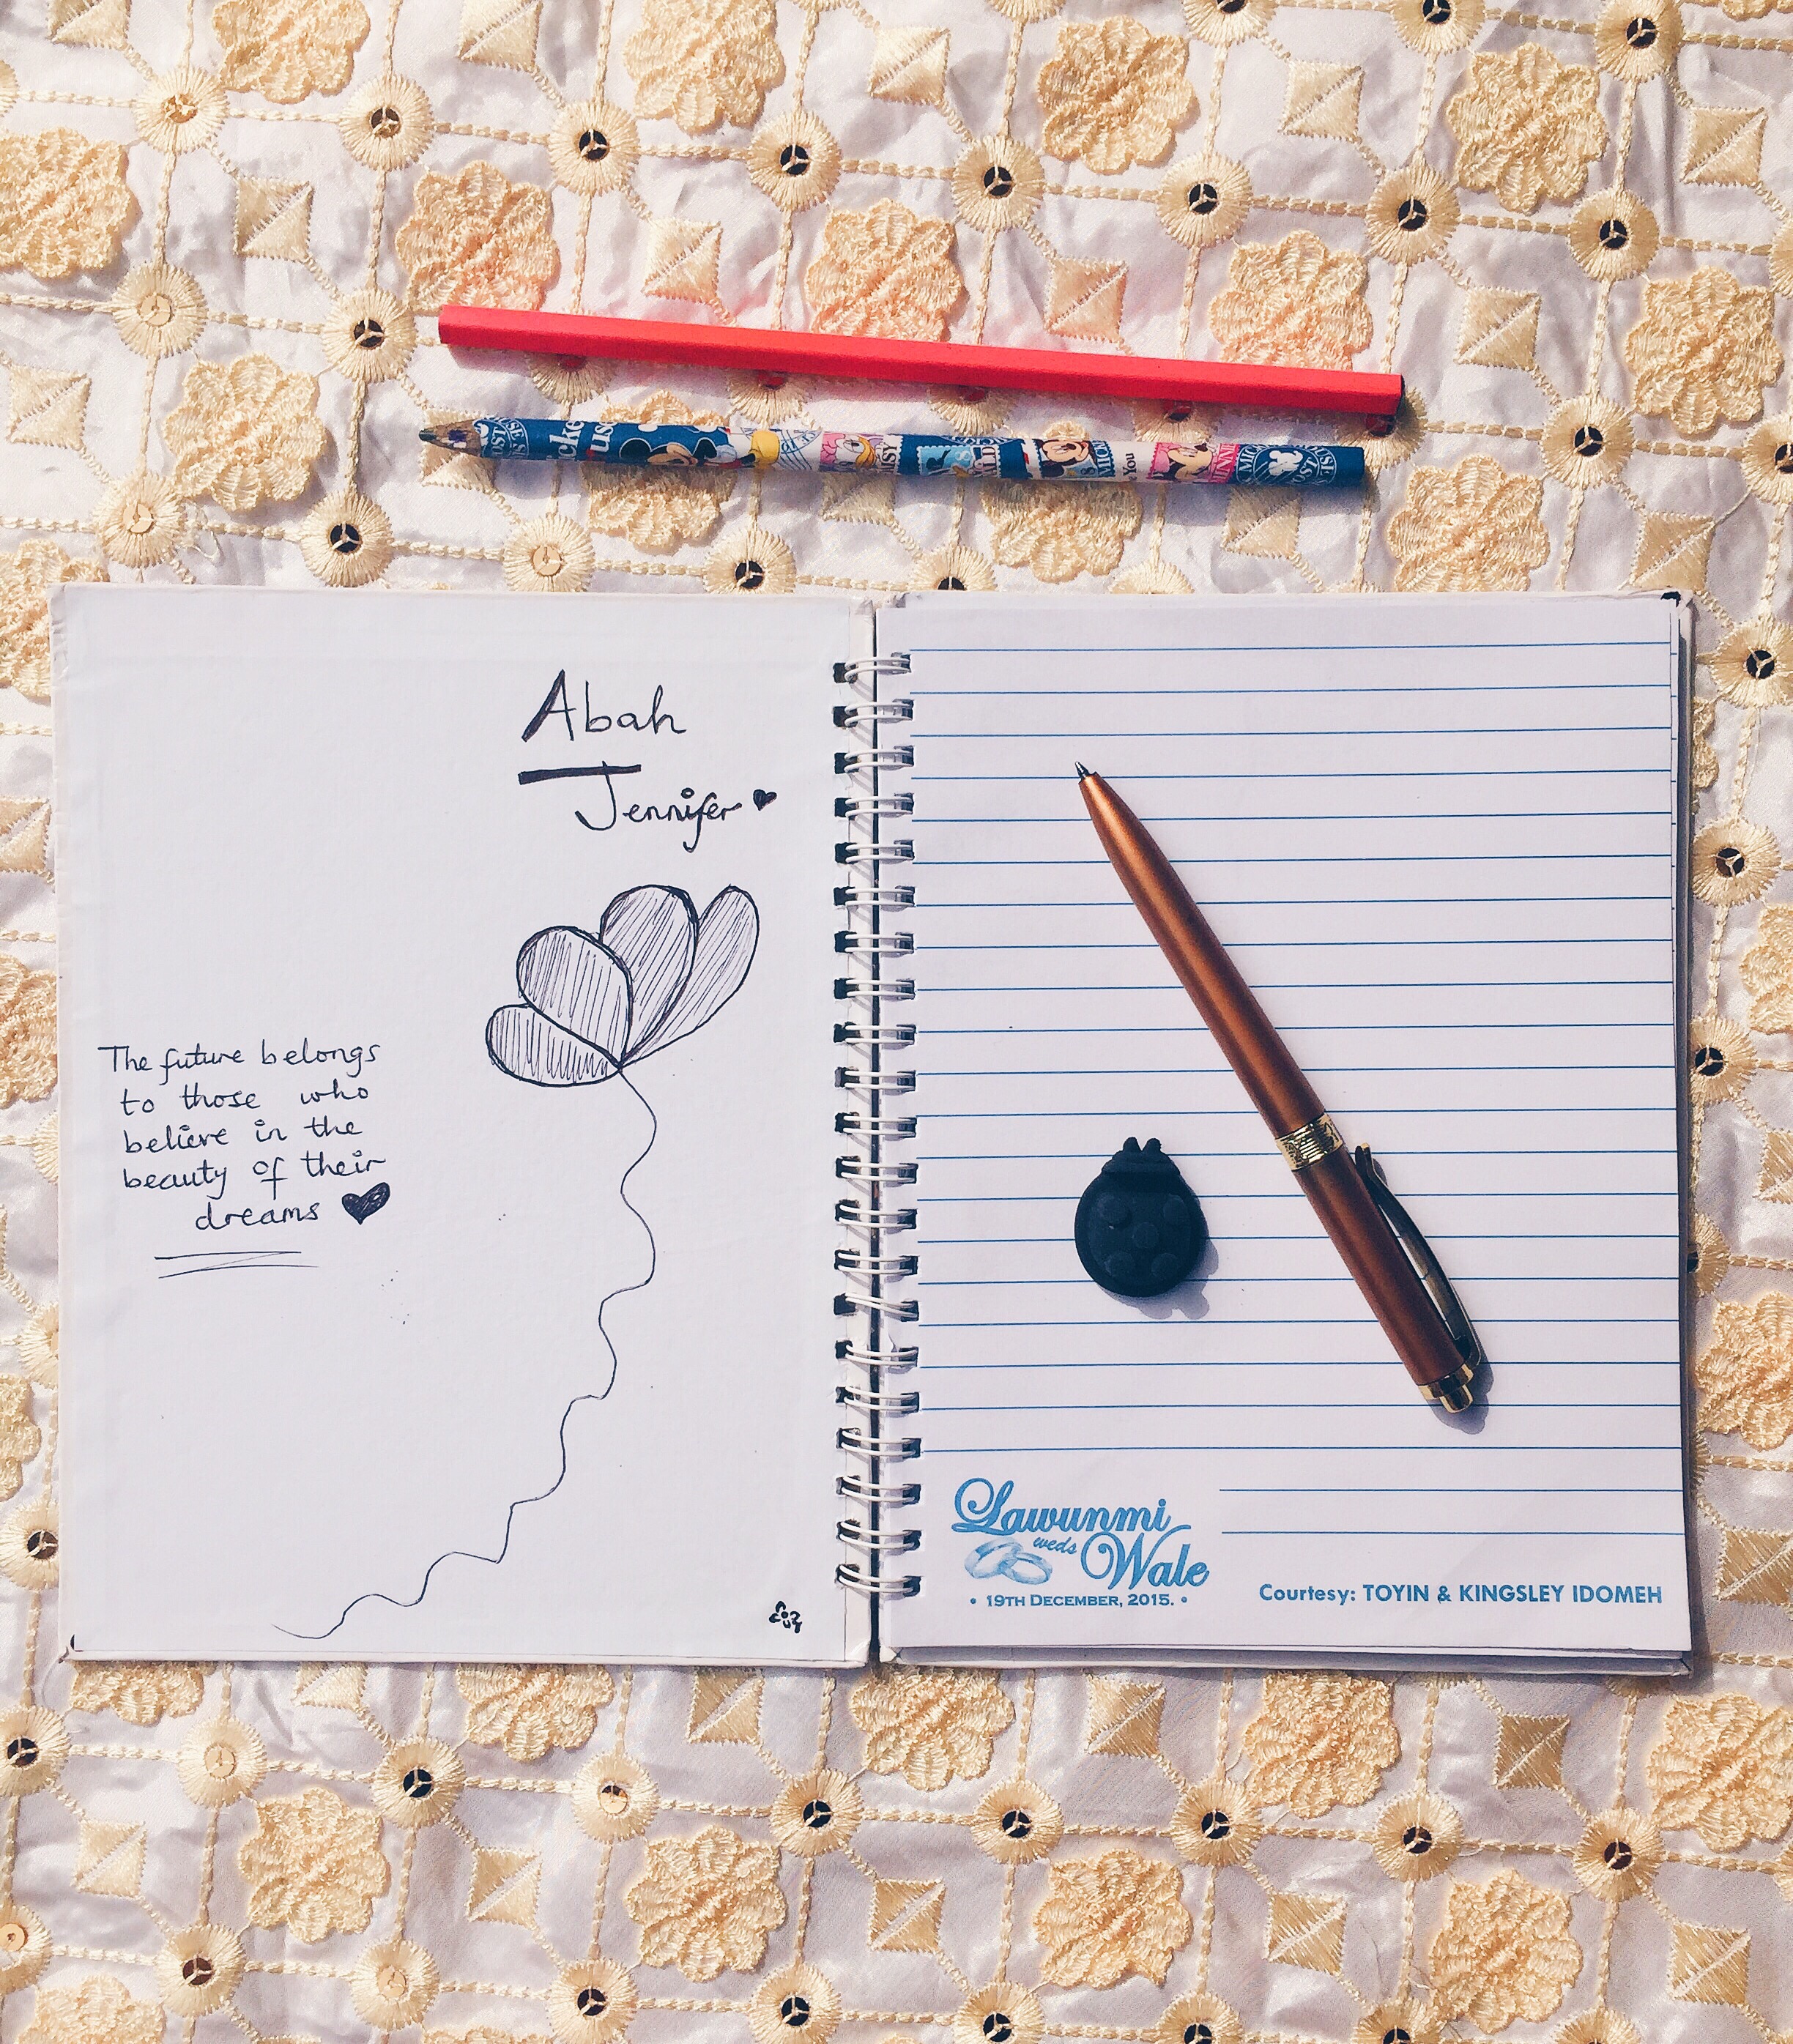 Abah
Jennifer
The future belongs
to those who
believe in the
beauty of their
dreams
Lawunmi
weds
Wale
• 19TH DECEMBER, 2015. •
Courtesy: TOYIN & KINGSLEY IDOMEH